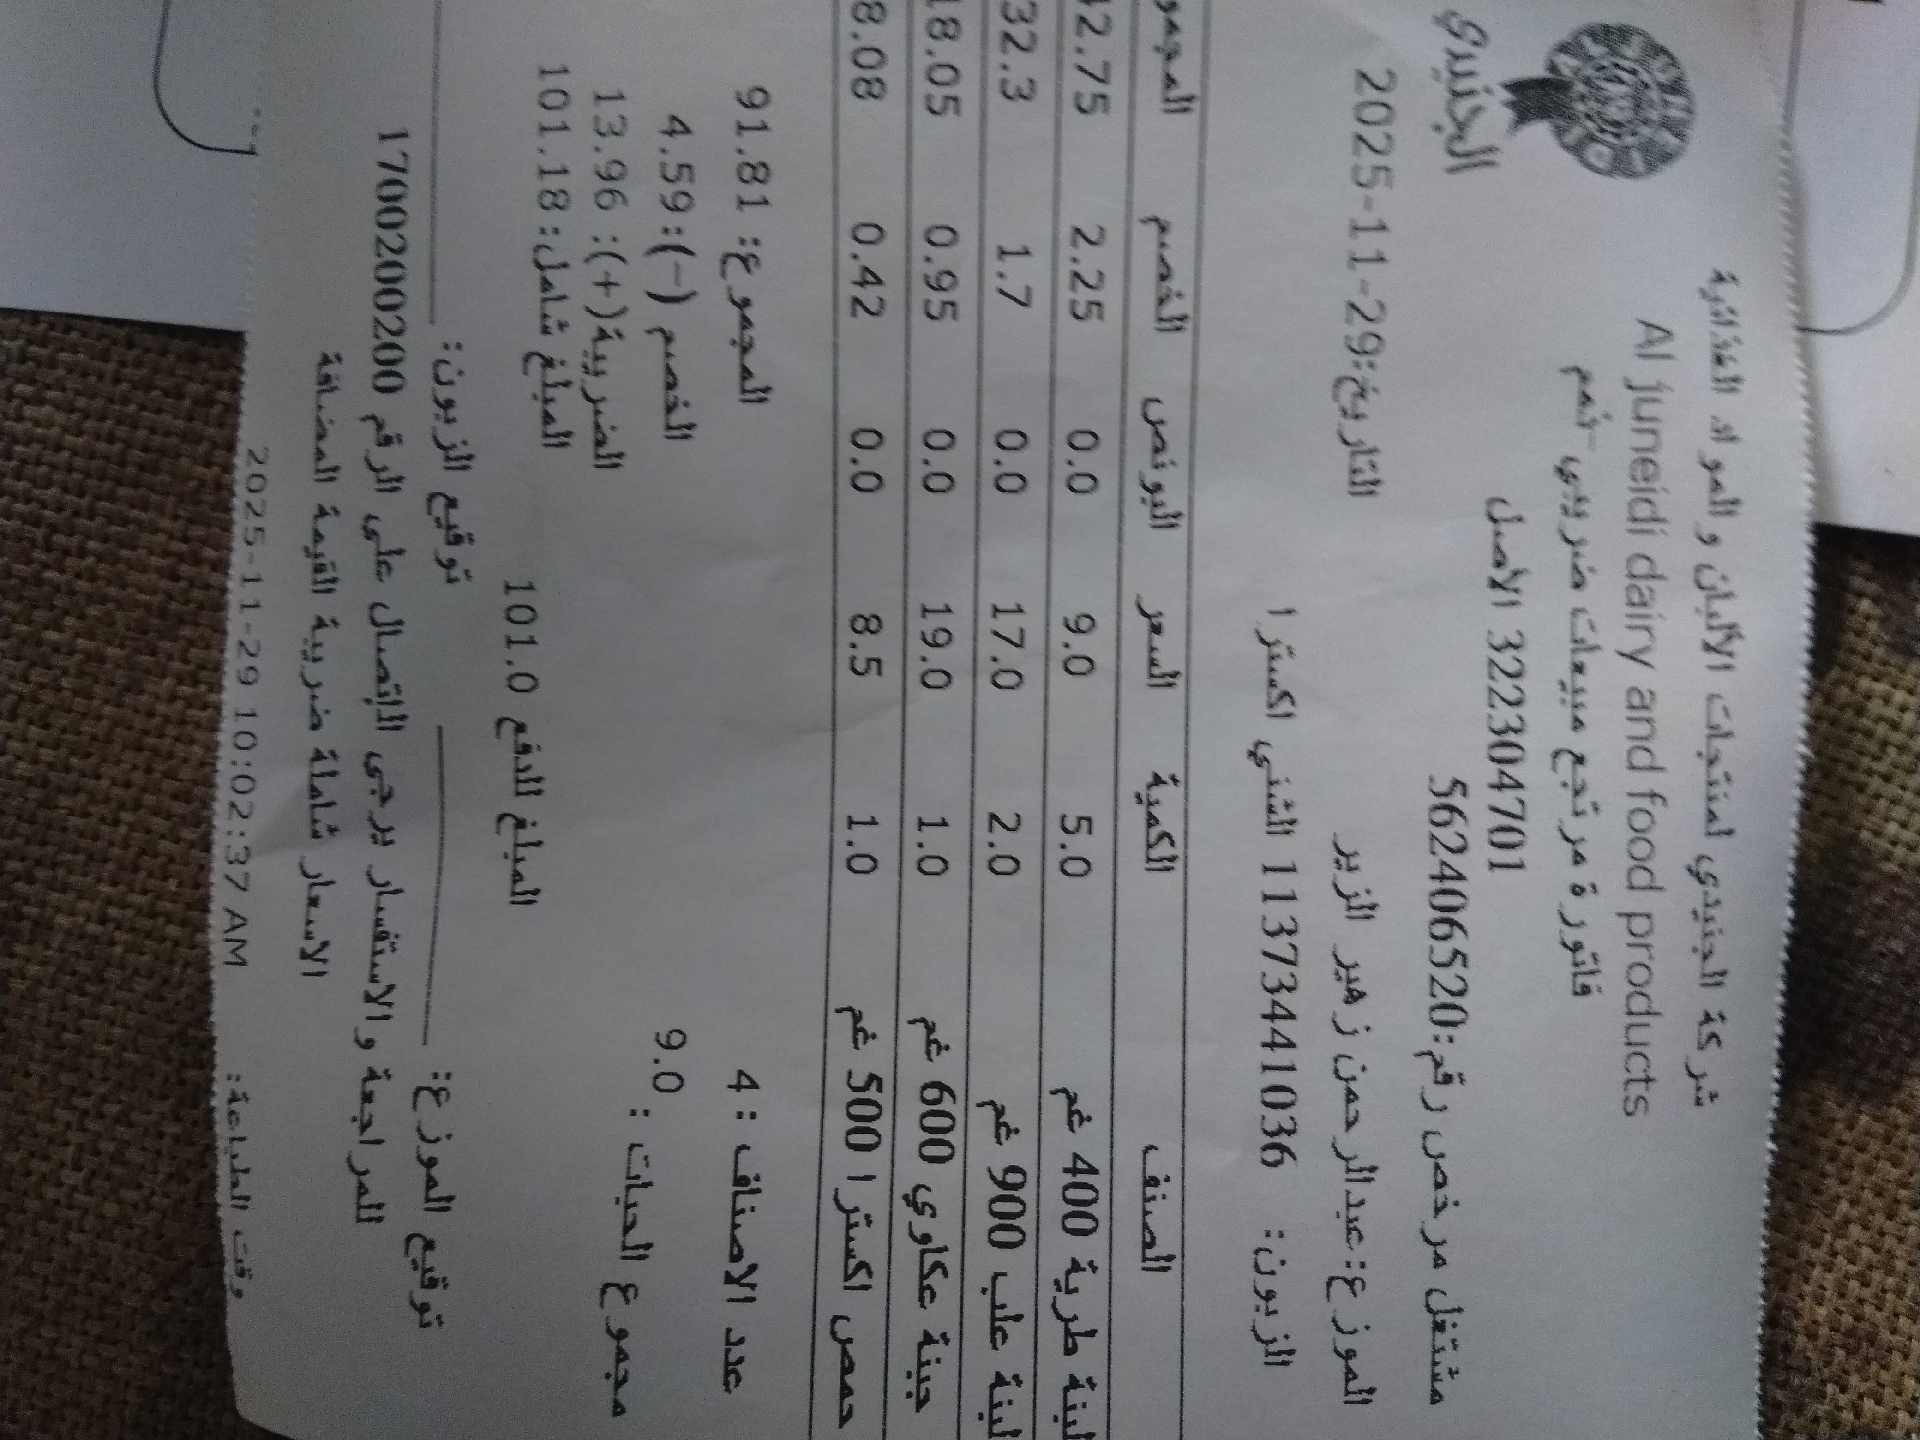 شركة الجنيدي لمنتجات الألبان والمواد الغذائية
Al juneidi dairy and food products
فاتورة مرتجع مبيعات ضريبي-ثمم
322304701 الأصل
الجنيدي
مشتغل مرخص رقم:562406520
الموزع:عبدالرحمن زهير الزير التاريخ:2025-11-29
الزبون: 11373441036 الثني اكسترا
الصنف الكمية السعر البونص الخصم المجمو
لبنة طرية 400 غم 5.0 9.0 0.0 2.25 42.75
لبنة علب 900 غم 2.0 17.0 0.0 1.7 32.3
جبنة عكاوي 600 غم 1.0 19.0 0.0 0.95 18.05
حمص اكسترا 500 غم 1.0 8.5 0.0 0.42 8.08
عدد الاصناف : 4 المجموع: 91.81
9.0 الخصم (-):4.59
مجموع الحبات : الضريبة(+): 13.96
المبلغ شامل: 101.18
المبلغ للدفع 101.0
توقيع الموزع: توقيع الزبون:
للمراجعة والاستفسار يرجى الاتصال على الرقم 1700200200
الاسعار شاملة ضريبة القيمة المضافة
وقت الطباعة: 2025-11-29 10:02:37 AM